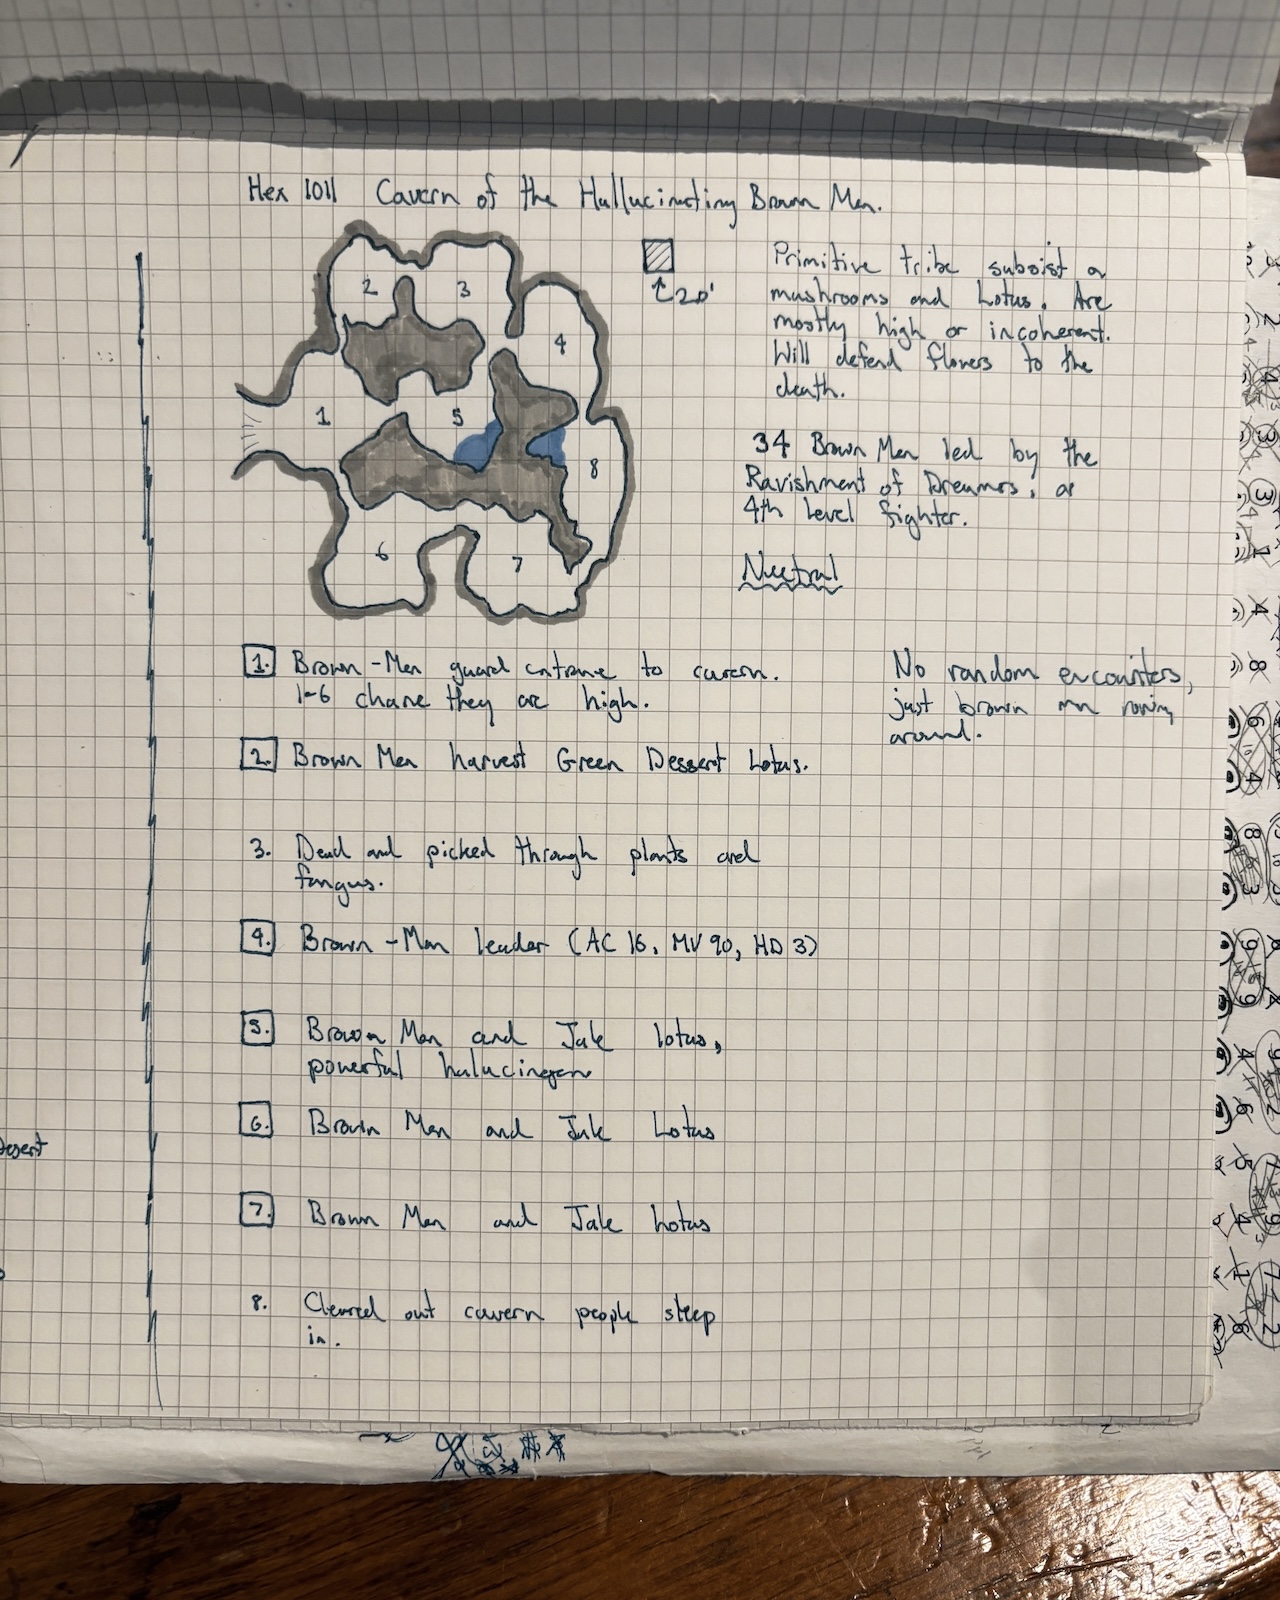 Hex 1011 Cavern of the Hallucinating Brown Men.
2
3
4
1
5
8
6
7
20'
Primitive tribe subsist on
mushrooms and Lotus. Are
mostly high or incoherent.
Will defend flowers to the
death.
34 Brown Men led by the
Ravishment of Dreamers, a
4th Level fighter.
Nuetral
1. Brown-Men guard entrance to cavern.
1-6 chance they are high.
No random encounters,
just brown men roving
around.
2. Brown Men harvest Green Dessert Lotus.
3. Dead and picked through plants and
fungus.
4. Brown-Man leader (AC 16, MV 90, HD 3)
5. Brown Men and Jale lotus,
powerful halucingen
6. Brown Men and Jale Lotus
7. Brown Men and Jale Lotus
8. Cleared out cavern people sleep
in.
Desert